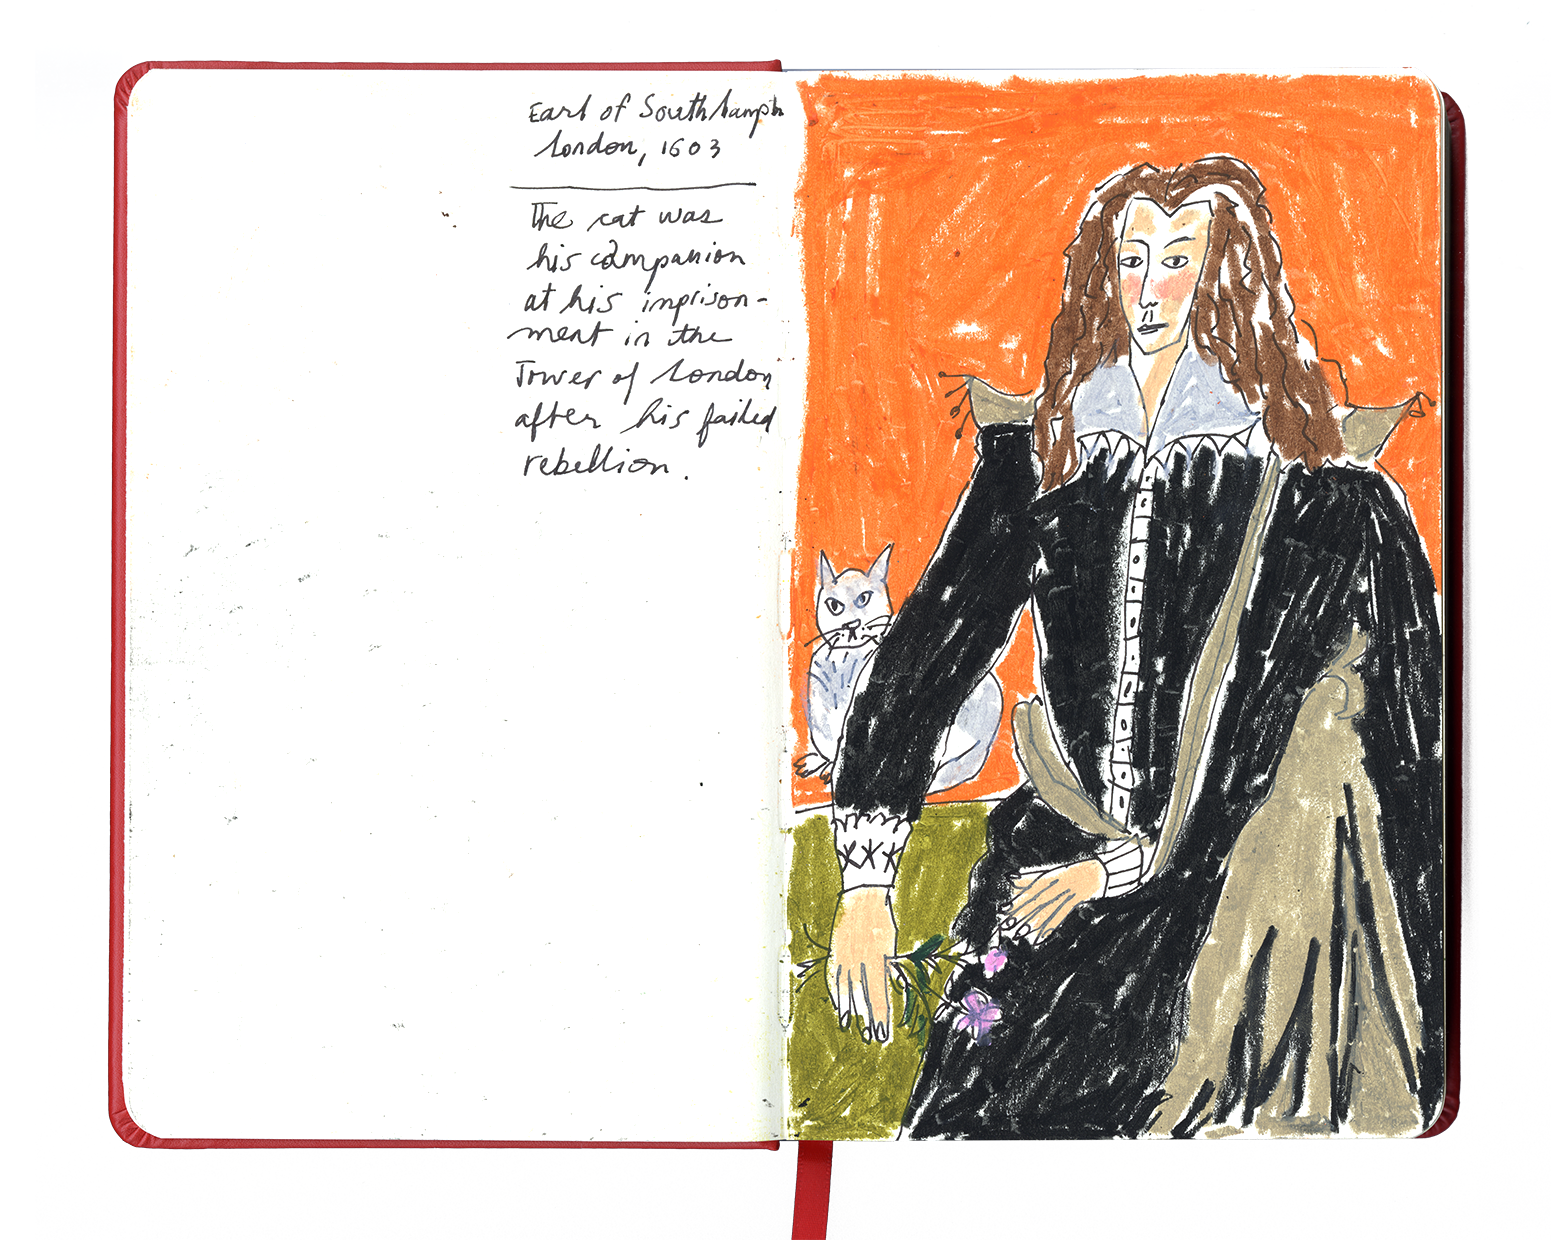 Earl of Southhampt
London, 1603
The cat was
his companion
at his imprison-
ment in the
Tower of London
after his failed
rebellion.